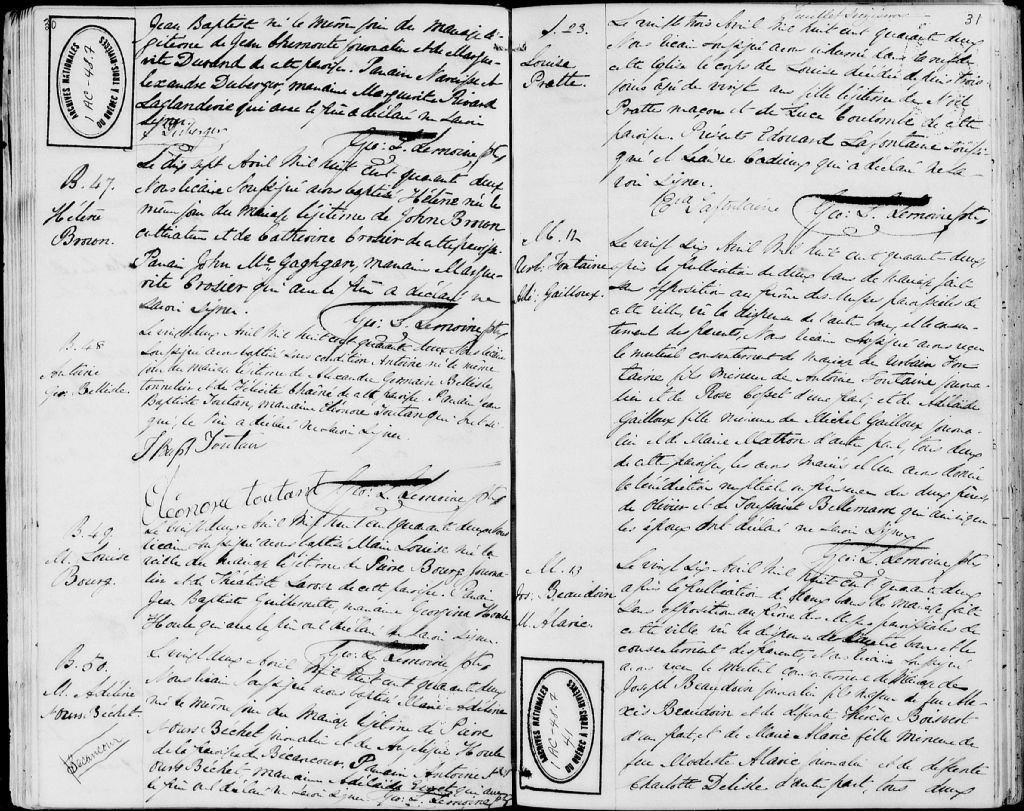 30
Jean Baptiste né le même jour du mariage lé-
gitime de Jean journalier et de Margue-
rite Durand de cette paroisse. Parrain Narcisse
Alexandre Duberger, marraine Marguerite Rivard
Laglanderie qui avec le père a déclaré ne savoir
signer.
Duberger
Geo: S. Lemoine ptre
ARCHIVES NATIONALES
DU QUÉBEC À TROIS-RIVIÈRES
B. 47.
Hélène
Brown.
Le dix sept Avril mil huit cent quarante deux
Nous vicaire soussigné avons baptisé Hélène née le
même jour du mariage légitime de John Brown
cultivateur et de Catherine Crosier de cette paroisse
Parrain John Mc Gaghgan, marraine Margue-
rite Crosier qui avec le père a déclaré ne
savoir signer.
Geo: S. Lemoine ptre
B. 48
Antoine
Ger. Bellisle.
Le vingt deux Avril mil huit cent quarante deux Nous vicaire
soussigné avons baptisé sous condition Antoine né le même
jour du mariage légitime de Alexandre Germain Bellisle
tonnelier et de Félicité Chaîné de cette paroisse. Parrain Jean
Baptiste Toutan, marraine Eléonore Toutan qui ont si-
gné, le père a déclaré ne savoir signer.
J Bapt Toutan
Eléonore toutant
Geo: S. Lemoine ptre
B. 49.
M. Louise
Bourg.
Le vingt deux Avril mil huit cent quarante deux Nous
vicaire soussigné avons baptisé Marie Louise née la
veille du mariage légitime de Pierre Bourg journa-
lier et de Théotiste de cette paroisse. Parrain
Jean Baptiste Guillemette, marraine Georgina Houle
Houle qui avec le père ont déclaré ne savoir signer.
Geo: S. Lemoine ptre
B. 50.
M. Adeline
Nours. Béchet.
Bécancour
Le vingt deux Avril mil huit cent quarante deux
Nous vicaire soussigné avons baptisé Marie Adeline
née le même jour du mariage légitime de Pierre
Nours Béchet journalier et de Angelique Houle
de la paroisse de Bécancour. Parrain Antoine
Nours Béchet, marraine Adélaide qui avec
le père ont déclaré ne savoir signer. Geo: S. Lemoine ptre
31
S. 23.
Louise
Pratte.
Le vingt trois Avril mil huit cent quarante deux
Nous vicaire soussigné avons inhumé dans la nef de
cette église le corps de Louise décédée depuis trois
jours âgée de vingt ans fille légitime de Noël
Pratte maçon et de Luce Coulombe de cette
paroisse. Présents Edouard Lafontaine soussi-
gné et Cadieux qui a déclaré ne sa-
voir signer.
Ed Lafontaine
Geo: S. Lemoine ptre
M. 12
Urb: Fontaine
Adé: Gailloux.
Le vingt six Avril mil huit cent quarante deux
après la publication de deux bans de mariage faite
sans opposition au prône des messes paroissiales de
cette ville, vu la dispense de l'autre ban, et le consen-
tement des parents, Nous vicaire soussigné avons reçu
le mutuel consentement de mariage de Urbain Fon-
taine fils mineur de Antoine Fontaine journa-
lier et de Rose d'une part, et de Adélaïde
Gailloux fille mineure de Michel Gailloux journa-
lier et de Marie Mathon d'autre part, tous deux
de cette paroisse, les avons mariés et leur avons donné
la bénédiction nuptiale en présence de deux frères
de Olivier et de Toussaint Bellemarre qui ainsi que
les époux ont déclaré ne savoir signer.
Geo: S. Lemoine ptre
M. 13
Jos: Beaudoin
M. Alarie.
Le vingt six Avril mil huit cent quarante deux
après la publication de deux bans de mariage faite
sans opposition au prône des messes paroissiales de
cette ville vu la dispense de l'autre ban et le
consentement des parents, Nous vicaire soussigné
avons reçu le mutuel consentement de mariage de
Joseph Beaudoin journalier fils majeur de feu Ale-
xis Beaudoin et de défunte Thérèse Boisvert
d'une part et de Marie Alarie fille mineure de
feu Modeste Alarie journalier et de défunte
Charlotte Delisle d'autre part, tous deux
ARCHIVES NATIONALES
DU QUÉBEC À TROIS-RIVIÈRES